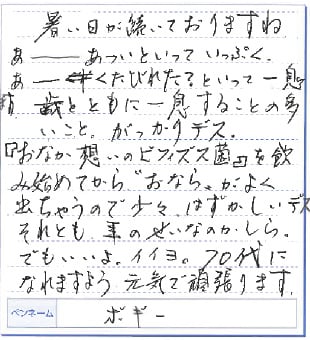 暑い日が続いておりますね
あ――あついといっていっぷく、
あ――くたびれたるといって一息
歳とともに一息することの多
いこと。がっかりデス。
『おなか想いのビフィズス菌』を飲
み始めてから〝おなら〟がよく
出ちゃうので少々はずかしいデス
それとも年のせいなのかしら。
でもいいよ。イイヨ。70代に
なれますよう元気で頑張ります。
ペンネーム ボギー